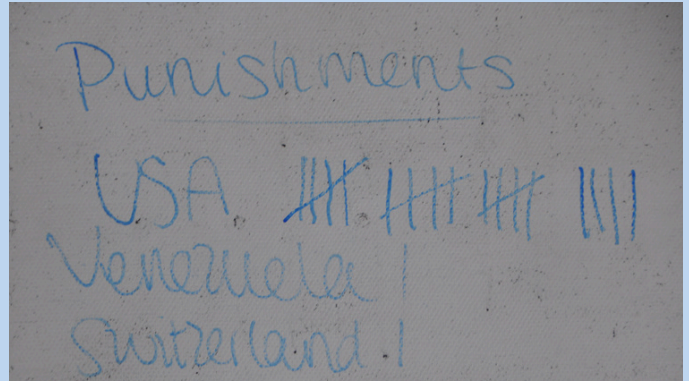 Punishments
USA. 卌 卌 卌 ||||
Venezuela |
Switzerland |